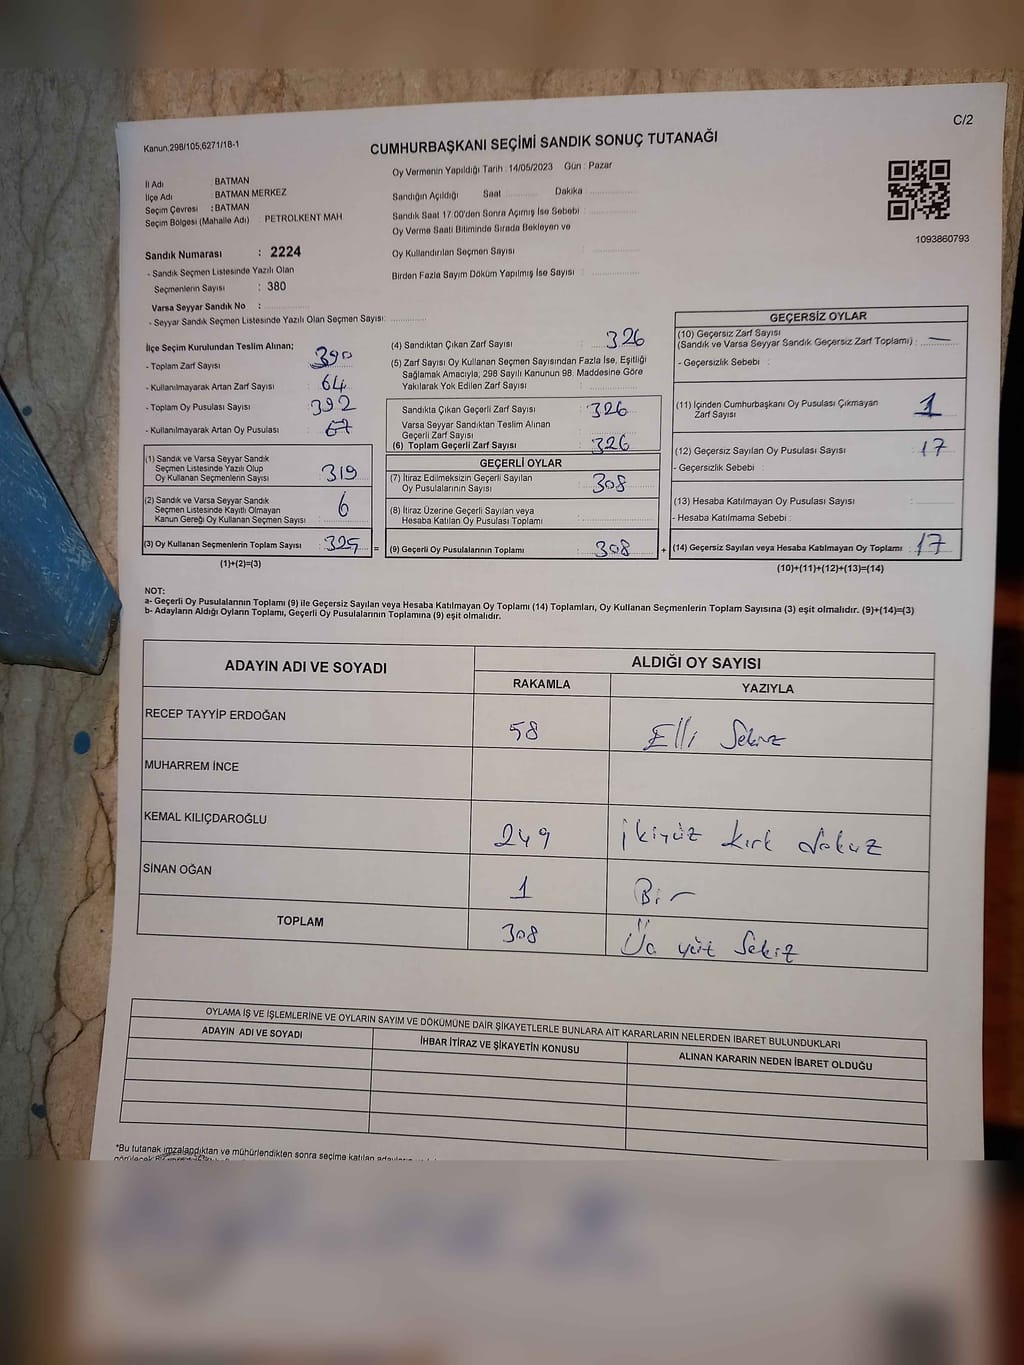 C/2
Kanun,298/105,6271/18-1
CUMHURBAŞKANI SEÇİMİ SANDIK SONUÇ TUTANAĞI
1093860793
İl Adı : BATMAN
İlçe Adı : BATMAN MERKEZ
Seçim Çevresi : BATMAN
Seçim Bölgesi (Mahalle Adı) : PETROLKENT MAH
Sandık Numarası : 2224
- Sandık Seçmen Listesinde Yazılı Olan
Seçmenlerin Sayısı : 380
Varsa Seyyar Sandık No :
- Seyyar Sandık Seçmen Listesinde Yazılı Olan Seçmen Sayısı:
Oy Vermenin Yapıldığı Tarih : 14/05/2023 Gün : Pazar
Sandığın Açıldığı Saat Dakika
Sandık Saat 17:00'den Sonra Açımış İse Sebebi :
Oy Verme Saati Bitiminde Sırada Bekleyen ve
Oy Kullandırılan Seçmen Sayısı :
Birden Fazla Sayım Döküm Yapılmış İse Sayısı :
İlçe Seçim Kurulundan Teslim Alınan;
- Toplam Zarf Sayısı : 390
- Kullanılmayarak Artan Zarf Sayısı : 64
- Toplam Oy Pusulası Sayısı : 392
- Kullanılmayarak Artan Oy Pusulası : 67
(1) Sandık ve Varsa Seyyar Sandık
Seçmen Listesinde Yazılı Olup
Oy Kullanan Seçmenlerin Sayısı : 319
(2) Sandık ve Varsa Seyyar Sandık
Seçmen Listesinde Kayıtlı Olmayan
Kanun Gereği Oy Kullanan Seçmen Sayısı : 6
(3) Oy Kullanan Seçmenlerin Toplam Sayısı : 325 =
(1)+(2)=(3)
(4) Sandıktan Çıkan Zarf Sayısı : 326
(5) Zarf Sayısı Oy Kullanan Seçmen Sayısından Fazla İse, Eşitliği
Sağlamak Amacıyla, 298 Sayılı Kanunun 98. Maddesine Göre
Yakılarak Yok Edilen Zarf Sayısı :
Sandıkta Çıkan Geçerli Zarf Sayısı : 326
Varsa Seyyar Sandıktan Teslim Alınan
Geçerli Zarf Sayısı :
(6) Toplam Geçerli Zarf Sayısı : 326
GEÇERLİ OYLAR
(7) İtiraz Edilmeksizin Geçerli Sayılan
Oy Pusulalarının Sayısı : 308
(8) İtiraz Üzerine Geçerli Sayılan veya
Hesaba Katılan Oy Pusulası Toplamı :
(9) Geçerli Oy Pusulalarının Toplamı : 308 +
GEÇERSİZ OYLAR
(10) Geçersiz Zarf Sayısı
(Sandık ve Varsa Seyyar Sandık Geçersiz Zarf Toplamı) : —
- Geçersizlik Sebebi :
(11) İçinden Cumhurbaşkanı Oy Pusulası Çıkmayan
Zarf Sayısı : 1
(12) Geçersiz Sayılan Oy Pusulası Sayısı : 17
- Geçersizlik Sebebi :
(13) Hesaba Katılmayan Oy Pusulası Sayısı :
- Hesaba Katılmama Sebebi :
(14) Geçersiz Sayılan veya Hesaba Katılmayan Oy Toplamı : 17
(10)+(11)+(12)+(13)=(14)
NOT:
a- Geçerli Oy Pusulalarının Toplamı (9) ile Geçersiz Sayılan veya Hesaba Katılmayan Oy Toplamı (14) Toplamları, Oy Kullanan Seçmenlerin Toplam Sayısına (3) eşit olmalıdır. (9)+(14)=(3)
b- Adayların Aldığı Oyların Toplamı, Geçerli Oy Pusulalarının Toplamına (9) eşit olmalıdır.
ADAYIN ADI VE SOYADI ALDIĞI OY SAYISI
RAKAMLA YAZIYLA
RECEP TAYYİP ERDOĞAN 58 Elli Sekiz
MUHARREM İNCE
KEMAL KILIÇDAROĞLU 249 İkiyüz kırk dokuz
SİNAN OĞAN 1 Bir
TOPLAM 308 Üç yüz Sekiz
OYLAMA İŞ VE İŞLEMLERİNE VE OYLARIN SAYIM VE DÖKÜMÜNE DAİR ŞİKAYETLERLE BUNLARA AİT KARARLARIN NELERDEN İBARET BULUNDUKLARI
ADAYIN ADI VE SOYADI İHBAR İTİRAZ VE ŞİKAYETİN KONUSU ALINAN KARARIN NEDEN İBARET OLDUĞU
*Bu tutanak imzalandıktan ve mühürlendikten sonra seçime katılan